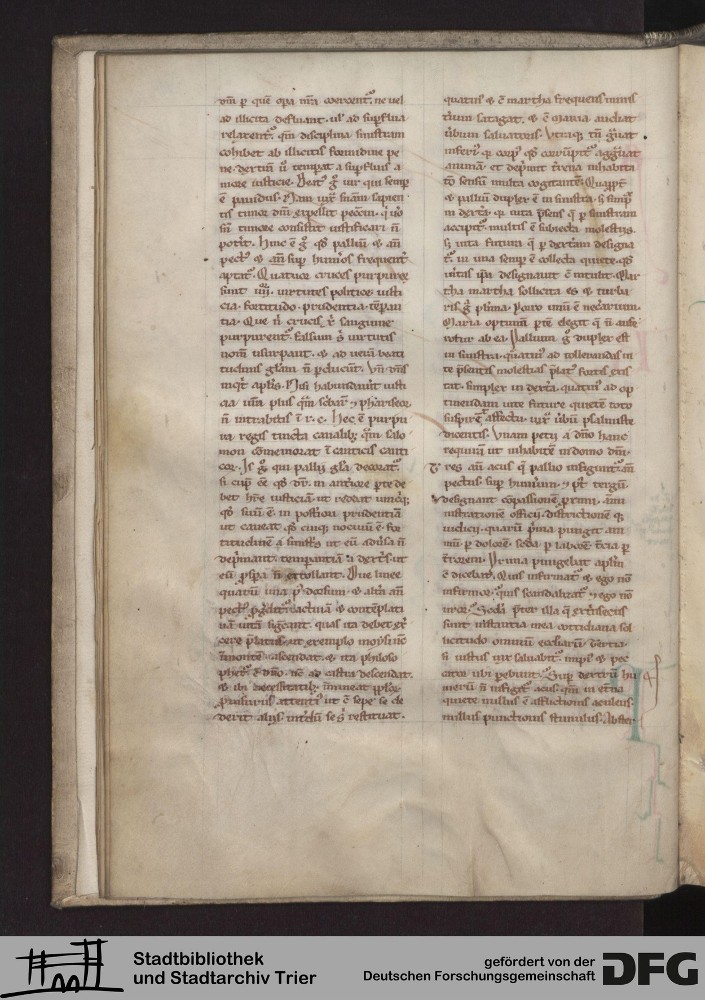 dm̄ ꝑ quē oꝑa nr̄a coercent᷑. ne uel
ad illicita defluant. ul᷑ ad suꝑflua
relaxent᷑. qm̄ disciplina sinistrum
cohibet ab illicitis formidine pe
ne. dextrū ū temꝑat a suꝑfluis a
more iusticie. Beat᷒ gͦ uir qui semꝑ
ē pauidus.
tis timor dn̄i expellit pecc̄m. q̇ uͦo
sin̄ timore consistit iustificari n̄
potͥt. hinc ē gͦ qd̓ palliū ⁊ an̄
pect᷒ ⁊ an̄ suꝑ hum̓os frequent᷑
aptat᷑. Quatuor cruces purpuree
sunt iiiiᵒʳ uirtutes politice. iusti
cia. fortitudo. prudentia. tēꝑan
tia. Que nͥ crucis xͥ sanguine
purpurent᷑. falsum sͥ uirtutis
nom̄ usurpant. ⁊ ad ueram beati
tudinis gl̄am n̄ ꝑducūt. Vn̄ dn̄s
inqͥt apl̄is. Nisi habundauit iusti
cia ur̄a plus qm̄ scͥbarū ⁊ phariseoꝝ
n̄ intrabitis ī r. c. Hec ē purpu
ra regis tincta canalibꝫ. qm̄ salo
mon cōmemorat ī canticis canti
coꝝ. Is gͦ qui pallii gl̄a decorat᷑.
si cupͥ ēe qd̓ dr̄. in antͥore ꝑte de
bet hr̄e iusticiā ut reddat unicͥqꝫ
qd̓ suū ē. in postͥori prudentiā
ut caueat qd̓ cuiqꝫ nociuū ē. for
titudinē a sinistͥs ut eū aduͥsa n̄
depͥmant. temꝑantiā a dextͥs. ut
eū ꝓspͥa n̄ extollant. Due linee
quarū una pᷤ dorsum. ⁊ alt̓a an̄
pect᷒
uā uitā sigͥficant. quas ita debet ex̓
cere pᷤlatus. ut exemplo moysi nc̄
in montē ascendat. ⁊ ita philoso
phet᷑ c̄ dn̄o. nc̄ ad castra descendat.
⁊ ibi necessitatibꝫ immineat
attent᷒ ut c̄ sepe se de
derit aliis. int̓dū se sͥ restituat.
quatus ⁊ ē martha frequens minis
tͥum satagat. ⁊ ē maria audiat
ūbum saluatoris. Vtraqꝫ tn̄ gͣuat
inferi᷒. qꝛ corp᷒ qd̓ corrūpit᷑ aggͣuat
animā. et depͥmit tͬrena inhabita
tͦo sensū multa cogitantē. Quapͣpt᷑
⁊ palliū duplex ē in sinistra. ⁊ simpͥ
in dextͣ. qꝛ uita pͥsens q̄ ꝑ sinistram
accipit᷑. multis ē subiecta molestiis.
sꝫ uita futura q̄ ꝑ dextram designa
t᷑. in una semꝑ ē collecta quiete. qd̓
ūitas ip̄a designauit ē intulit. Mar
tha martha sollicita es ⁊ turba
ris gͣ plͥima. Porro unū ē nec̄arium.
Maria optimā ꝑtē elegit q̄ n̄ aufe
retur ab ea. Pallium gͦ duplex est
in sinistra. quatin᷒ ad tollerandas ui
te pͥsentis molestias pͥlat᷒ fortis exis
tat. simplex in dextͣ. quatin᷒ ad op
tinendam uite future quietē toto
suspiret affectu. iux̄ ūbū psalmiste
dicentis. Vnam petii a dn̄o hanc
requirā ut inhabitē in domo dn̄i.
res aū acus q̄ pallio infigunt᷑. an̄
pectus. suꝑ humͤrum. ⁊ post tergū
designant cōpassionē proximi. ami
nistrationē officii. districtionē qꝫ
iudicii. quarū pͥma pungit ani
mū ꝑ dolorē. scͣda ꝑ laborē. tͣcia ꝑ
tͬrorem. Prima pungebat apl̄m
c̄ dicebat. Quis infirmat᷑ ⁊ ego nō
infirmor. quis scandalizat᷑ ⁊ ego nō
uror. Scd̄a. pͣter illa q̄ extͥnsecus
sunt instantia mea cottidiana sol
licitudo omniū eccl̄iarū. Tertia.
si iustus uix saluabit᷑. impi᷒ ⁊ pec
cator ubi parebunt. Suꝑ dextrū hu
merū n̄ infigit᷑ acus. qm̄ in et̓na
quiete nullus ē afflictionis aculeus.
nullus punctionis stimulus. Abster
Stadtbibliothek
und Stadtarchiv Trier
gefördert von der
Deutschen Forschungsgemeinschaft
DFG